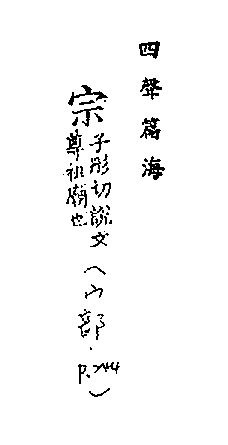 四聲篇海
宗子彤切說文
尊祖廟也
(宀部.
p.744)